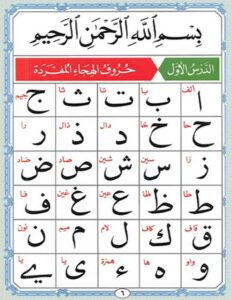 بِسْمِ اللَّهِ الرَّحْمَٰنِ الرَّحِيمِ
الدَّرْسُ الْأَوَّلُ حُرُوفُ الْهِجَاءِ الْمُفْرَدَة
الف با تا ثا جيم
ا ب ت ث ج
حا خا دال ذال را
ح خ د ذ ر
زا سين شين صاد ضاد
ز س ش ص ض
طا ظا عين غين فا
ط ظ ع غ ف
قاف كاف لام ميم نون
ق ك ل م ن
واو ها همزة يا يا
و ه ء ي ے
٦